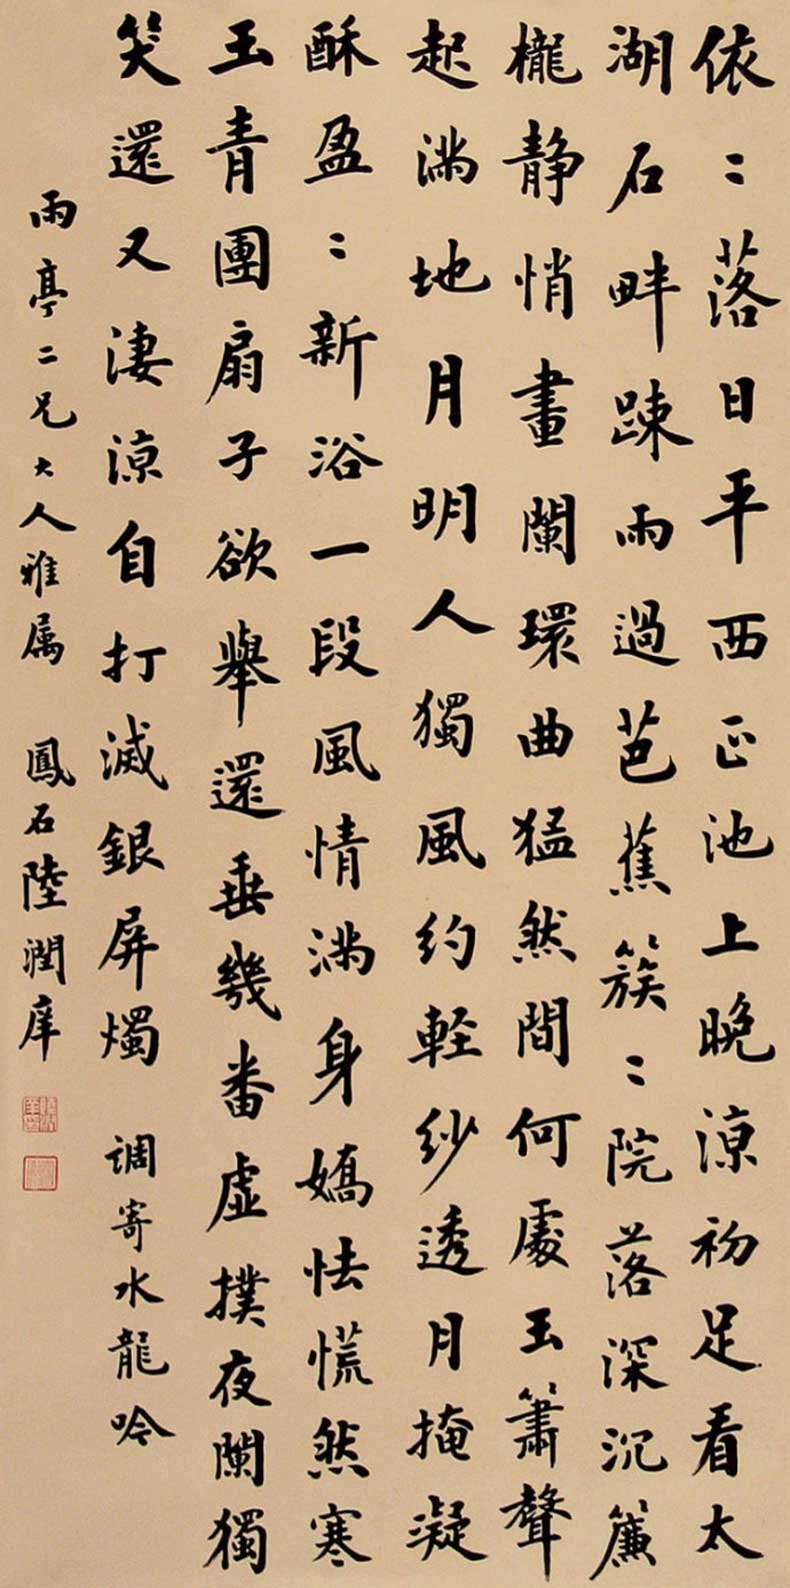 依〻落日平西正池上晚涼初足看太
湖石畔疎雨過芭蕉簇〻院落深沉簾
櫳静悄畫闌環曲猛然間何處玉簫聲
起滿地月明人獨風約輕紗透月掩凝
酥盈〻新浴一段風情滿身嬌怯慌然寒
玉青團扇子欲舉還垂幾番虛撲夜闌獨
笑還又淒涼自打滅銀屏燭 調寄水龍吟
雨亭二兄大人雅属 鳳石陸潤庠